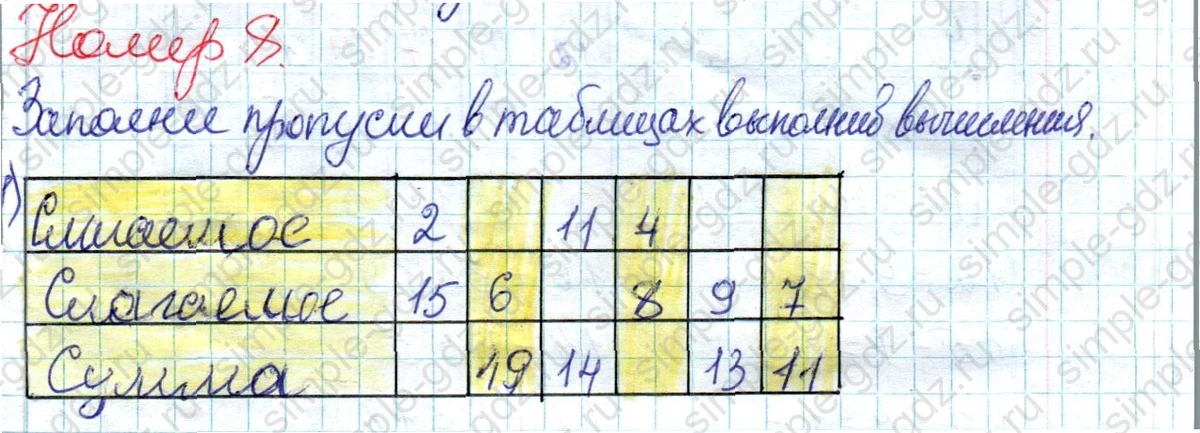 Номер 8.
Заполни пропуски в таблицах выполнив вычисления.
1)
Слагаемое 2 11 4
Слагаемое 15 6 8 9 7
Сумма 19 14 13 11
simple-gdz.ru